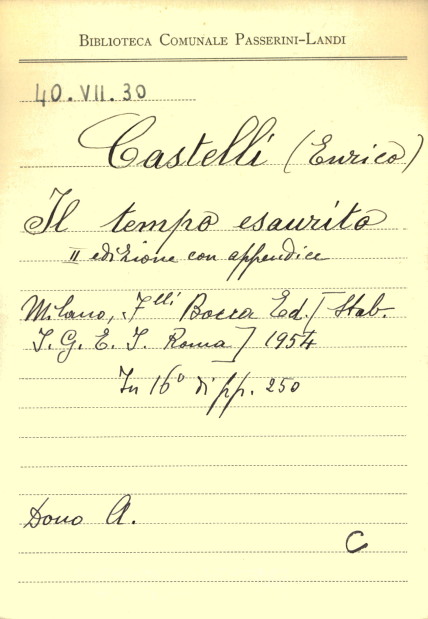 BIBLIOTECA COMUNALE PASSERINI-LANDI
40.VII.30
Castelli (Enrico)
Il tempo esaurito
II edizione con appendice
Milano, F.lli Bocca Ed. [Stab.
I. G. E. I. Roma] 1954
In 16° di pp. 250
Dono A.
C